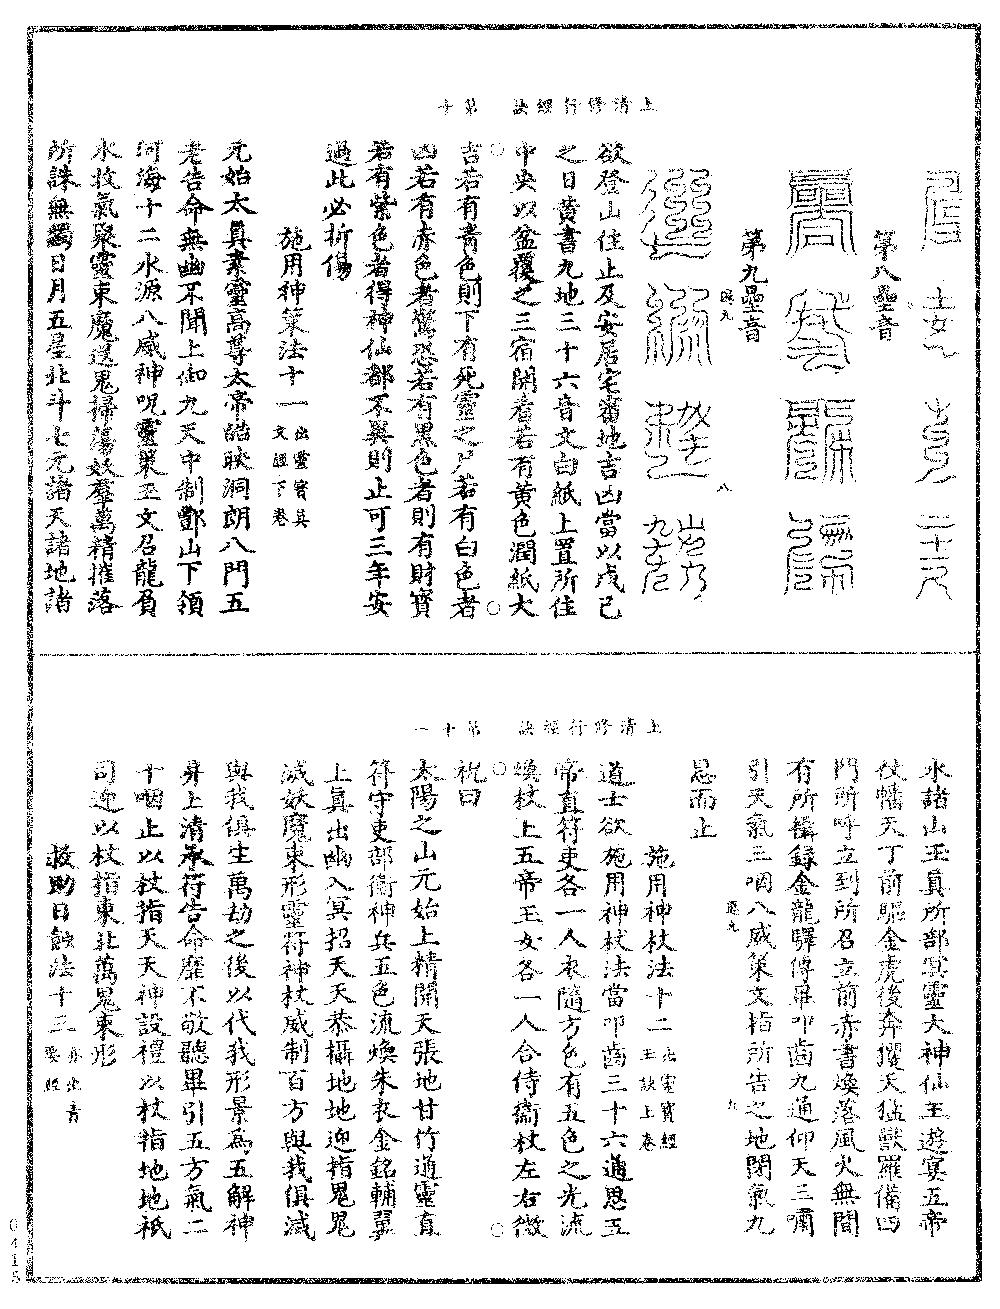 上清修行經訣　第十
第八壘音
第九壘音
欲登山住止及安居宅審地吉凶當以戊己
之日黄書九地三十六音文白紙上置所住
中央以盆覆之三宿開看若有黄色潤紙大
吉若有青色則下有死靈之尸若有白色者
凶若有赤色者驚恐若有黒色者則有財寳
若有紫色者得神仙都不與則止可三年安
過此必折傷
施用神策法十一出靈寳真文經下卷
元始太真素靈高尊太帝皓映洞朗八門五
老告命無幽不聞上御九天中制酆山下領
河海十二水源八威神呪靈策玉文召龍負
水收氣聚靈束魔送鬼掃蕩妖羣萬精摧落
所誅無蠲日月五星北斗七元諸天諸地諸
上清修行經訣　第十一
水諸山玉真所部冥靈大神仙王遊宴五帝
仗幡天丁前驅金虎後奔攫天猛獸羅備四
門所呼立到所召立前赤書煥落風火無間
有所攝録金龍驛傳畢叩齒九通仰天三嘯
引天氣三咽八威策文指所告之地閉氣九
息而止
施用神杖法十二出靈寳經玉訣上卷
道士欲施用神杖法當叩齒三十六通思五
帝直符吏各一人衣隨方色有五色之光流
煥杖上五帝玉女各一人合侍衞杖左右微
祝曰
太陽之山元始上精開天張地甘竹通靈直
符守吏部衞神兵五色流煥朱衣金銘輔翼
上真出幽入冥招天天恭攝地地迎指鬼鬼
滅妖魔束形靈符神杖威制百方與我俱滅
與我俱生萬劫之後以代我形景爲五解神
昇上清承符告命靡不敬聽畢引五方氣二
十咽止以杖指天天神設禮以杖指地地祇
司迎以杖指東北萬鬼束形
救助日蝕法十三
0415